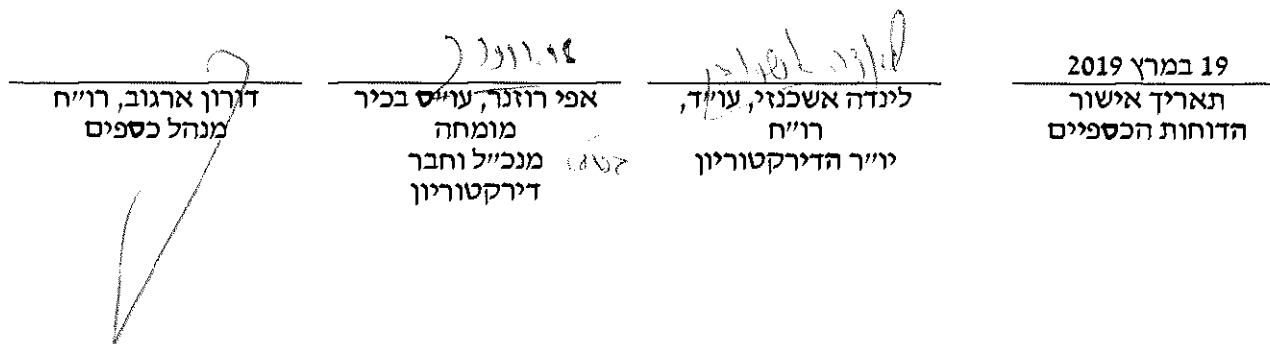 19 במרץ 2019
תאריך אישור
הדוחות הכספיים
לינדה אשכנזי, עו״ד,
רו״ח
יו״ר הדירקטוריון
אפי רוזנר, עו״ס בכיר
מומחה
מנכ״ל וחבר
דירקטוריון
דורון ארגוב, רו״ח
מנהל כספים